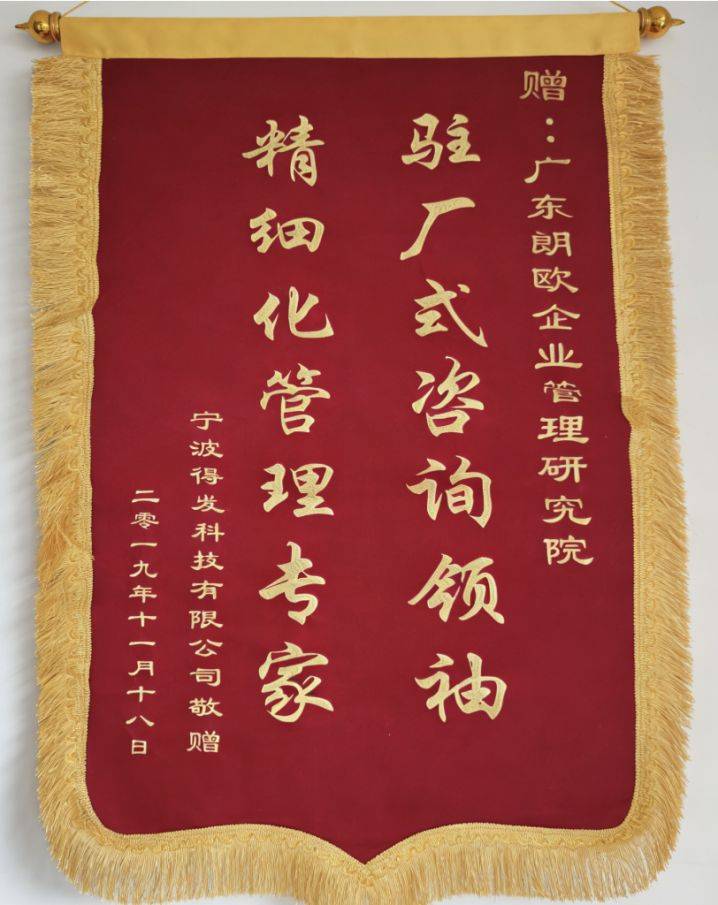 赠：广东朗欧企业管理研究院
驻厂式咨询领袖
精细化管理专家
宁波得发科技有限公司敬赠
二零一九年十一月十八日